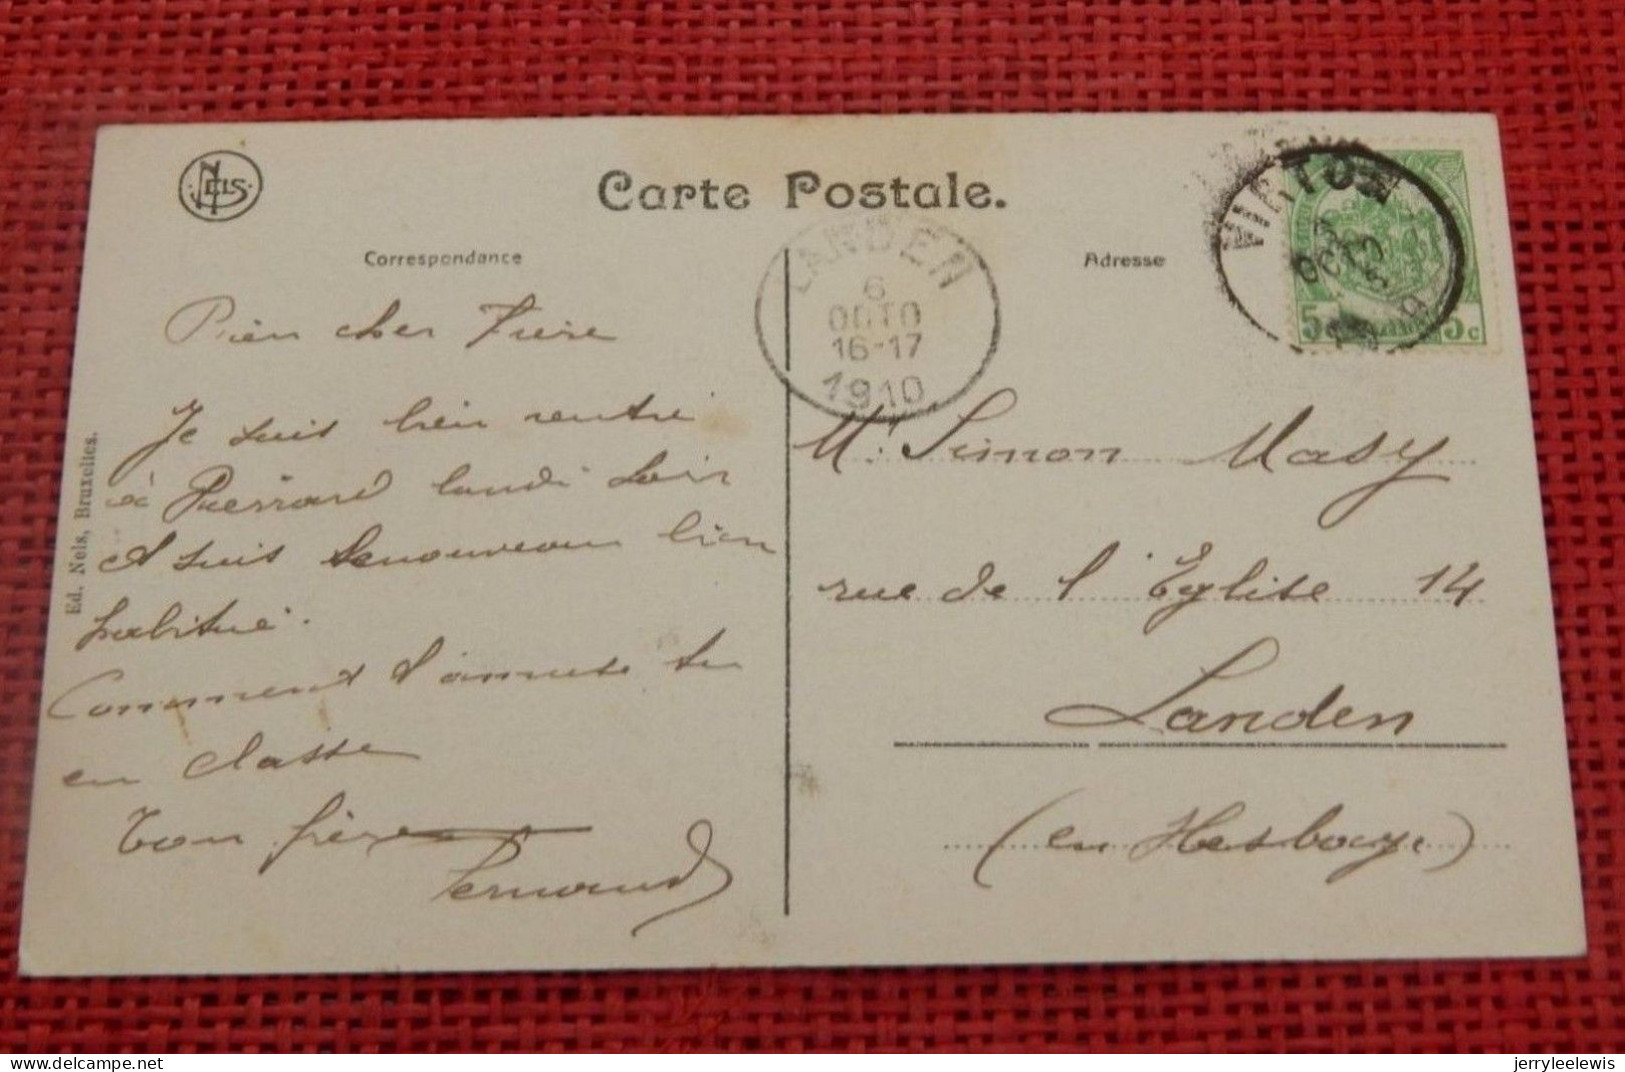 NELS
Carte Postale.
Correspondance
Adresse
LANDEN
6
OCTO
16-17
1910
VIRTON
OCTO
5c 5c
Bien cher Frère
Je suis bien rentré
à Pierrard lundi soir
et suis de nouveau bien
habitué.
Comment t'amuse tu
en classe
Ton frère
Fernand
Mr. Simon Masy
rue de l'Eglise 14
Landen
(en Hesbaye)
Ed. Nels, Bruxelles.
delcampe.net
jerryleelewis